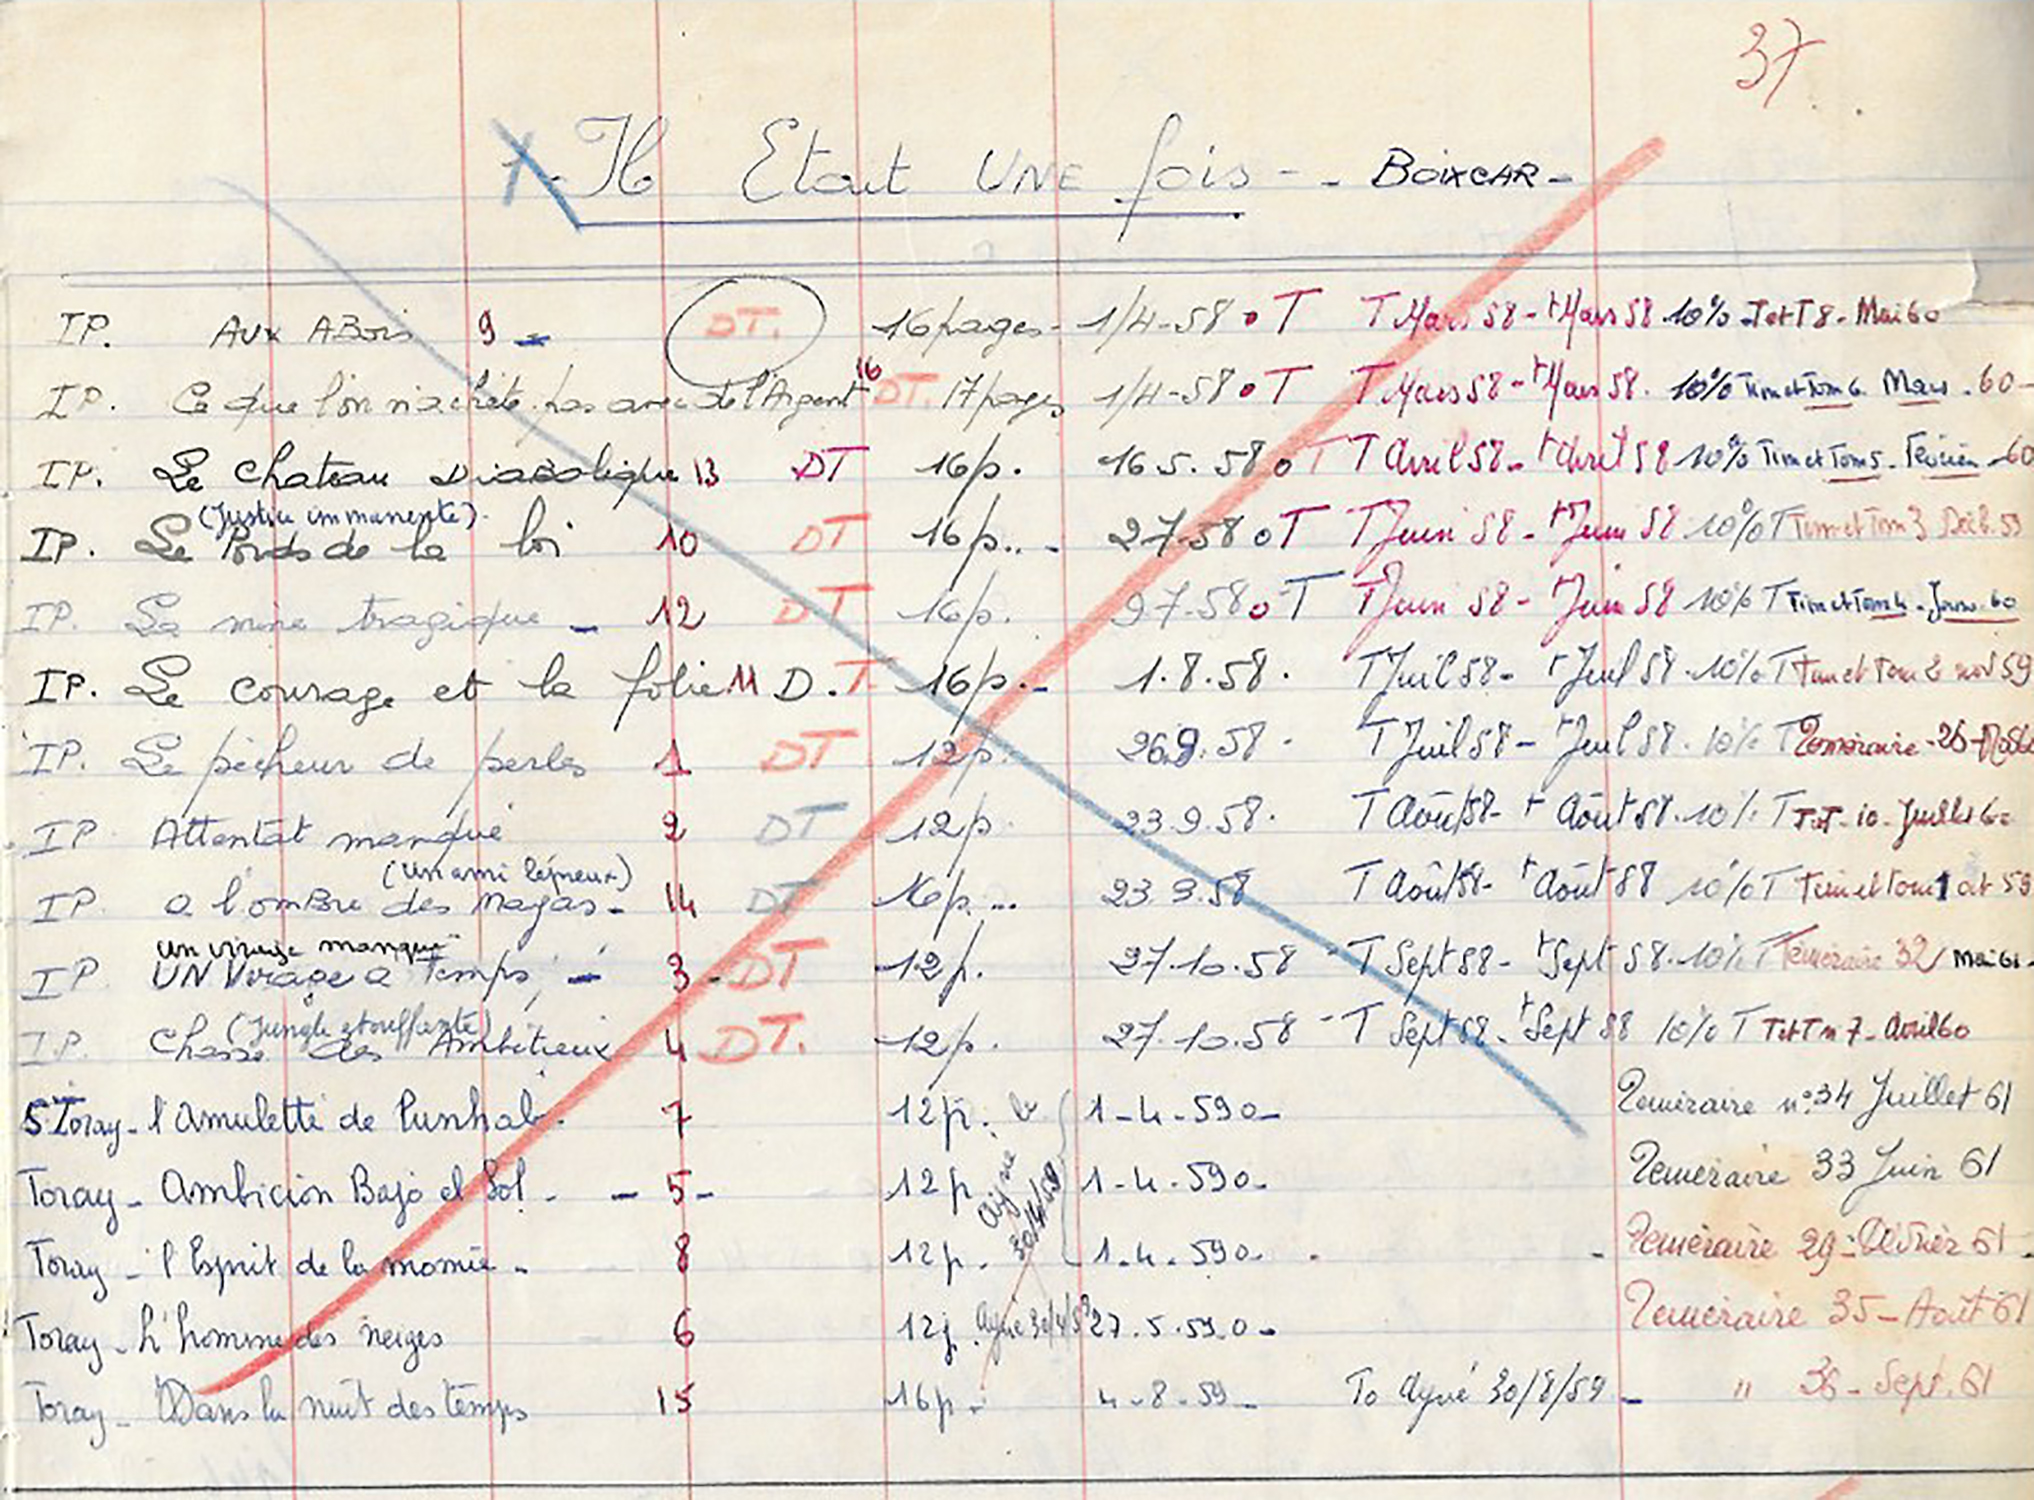 37
Il Etait UNE fois - - BOIXCAR -
IP. AUX ABois 9 - DT. 16 pages - 1/4-58 o T T Mars 58 - t Mars 58 10% TetT 8 - Mai 60
IP. Ce que l'on n'achète pas avec de l'Argent 16 DT. 17 pages 1/4-58 o T T Mars 58 - t Mars 58. 10% Tim et Tom 6. Mars. 60 -
IP. Le chateau Diabolique 13 DT 16p. 16 5. 58 o T T Avril 58 - t Avril 58 10% Tim et Tom 5 - Février - 60
(Justice immanente).
IP. Le Poids de la loi 10 DT 16p.. - 27-58 o T T Juin 58 - t Juin 58 10% T Tim et Tom 3 Déc. 59
IP. La mine tragique - 12 DT 16p. 9 7-58 o T T Juin 58 - Juin 58 10% T Tim et Tom 4 - Janv. 60
IP. Le courage et la folie 11 D.T 16p.- 1.8.58. T Juil 58 - t Juil 58 - 10% T Tim et Tom 2 nov 59
IP. Le pêcheur de perles 1 DT 12p. 26.9.58 - T Juil 58 - Juil 58. 10% T Téméraire - 26 -
IP. Attentat manqué 2 DT 12p. 23.9.58. T Août 58 - t Août 58. 10% T TeT - 10 - Juillet 60
(Un ami lépreux)
IP. a l'ombre des Magas - 14 DT 16p... 23.9.58 T Août 58 - t Août 58 10% T Tim et Tom 1 oct 59
un virage manqué
IP. UN Virage a Temps, - 3 - DT - 12p. 27.10.58 - T Sept 58 - t Sept 58. 10% T Téméraire 32 Mai 61 -
(Jungle etouffante)
IP. Chasse des Ambitieux 4 DT. - 12p. 27.10.58 - T Sept 58 - t Sept 58 10% T TetTm 7 - Avril 60
5 Toray - l'Amulette de Punhab. 7 12p. 1-4-590- Téméraire n° 34 Juillet 61
Toray - Ambicion Bajo el Sol - - 5 - 12p 1-4-590- Téméraire 33 Juin 61
30/4/59
Toray - l'Esprit de la momie - 8 12p. 1-4-590- - Téméraire 29 - Février 61 -
Toray - L'homme des neiges 6 12p. Ayné 30/4/59 27.5.59.0 - Téméraire 35 - Août 61
Toray - Dans la nuit des temps 15 16p - 4-8-59 - To Ayné 30/8/59 - " 36 - Sept. 61